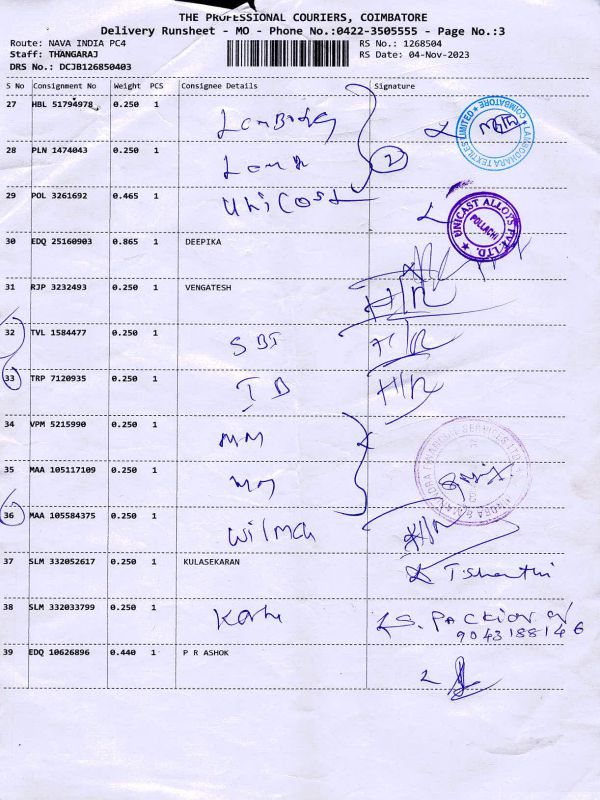 THE PROFESSIONAL COURIERS, COIMBATORE
Delivery Runsheet - MO - Phone No.:0422-3505555 - Page No.:3
Route: NAVA INDIA PC4 RS No.: 1268504
Staff: THANGARAJ RS Date: 04-Nov-2023
DRS No.: DCJB126850403
S No Consignment No Weight PCS Consignee Details Signature
27 HBL 51794978 0.250 1
LAMBODHARA TEXTILES LIMITED COIMBATORE
28 PLN 1474043 0.250 1 2
29 POL 3261692 0.465 1 Unicast
UNICAST ALLOYS PVT. LTD. POLLACHI
30 EDQ 25160903 0.865 1 DEEPIKA
31 RJP 3232493 0.250 1 VENGATESH H/R
32 TVL 1584477 0.250 1 SBI H/R
33 TRP 7120935 0.250 1 IB H/R
34 VPM 5215990 0.250 1 MM
35 MAA 105117109 0.250 1
36 MAA 105584375 0.250 1 H/R
37 SLM 332052617 0.250 1 KULASEKARAN T Shanthi
38 SLM 332033799 0.250 1
9043188146
39 EDQ 10626896 0.440 1 P R ASHOK